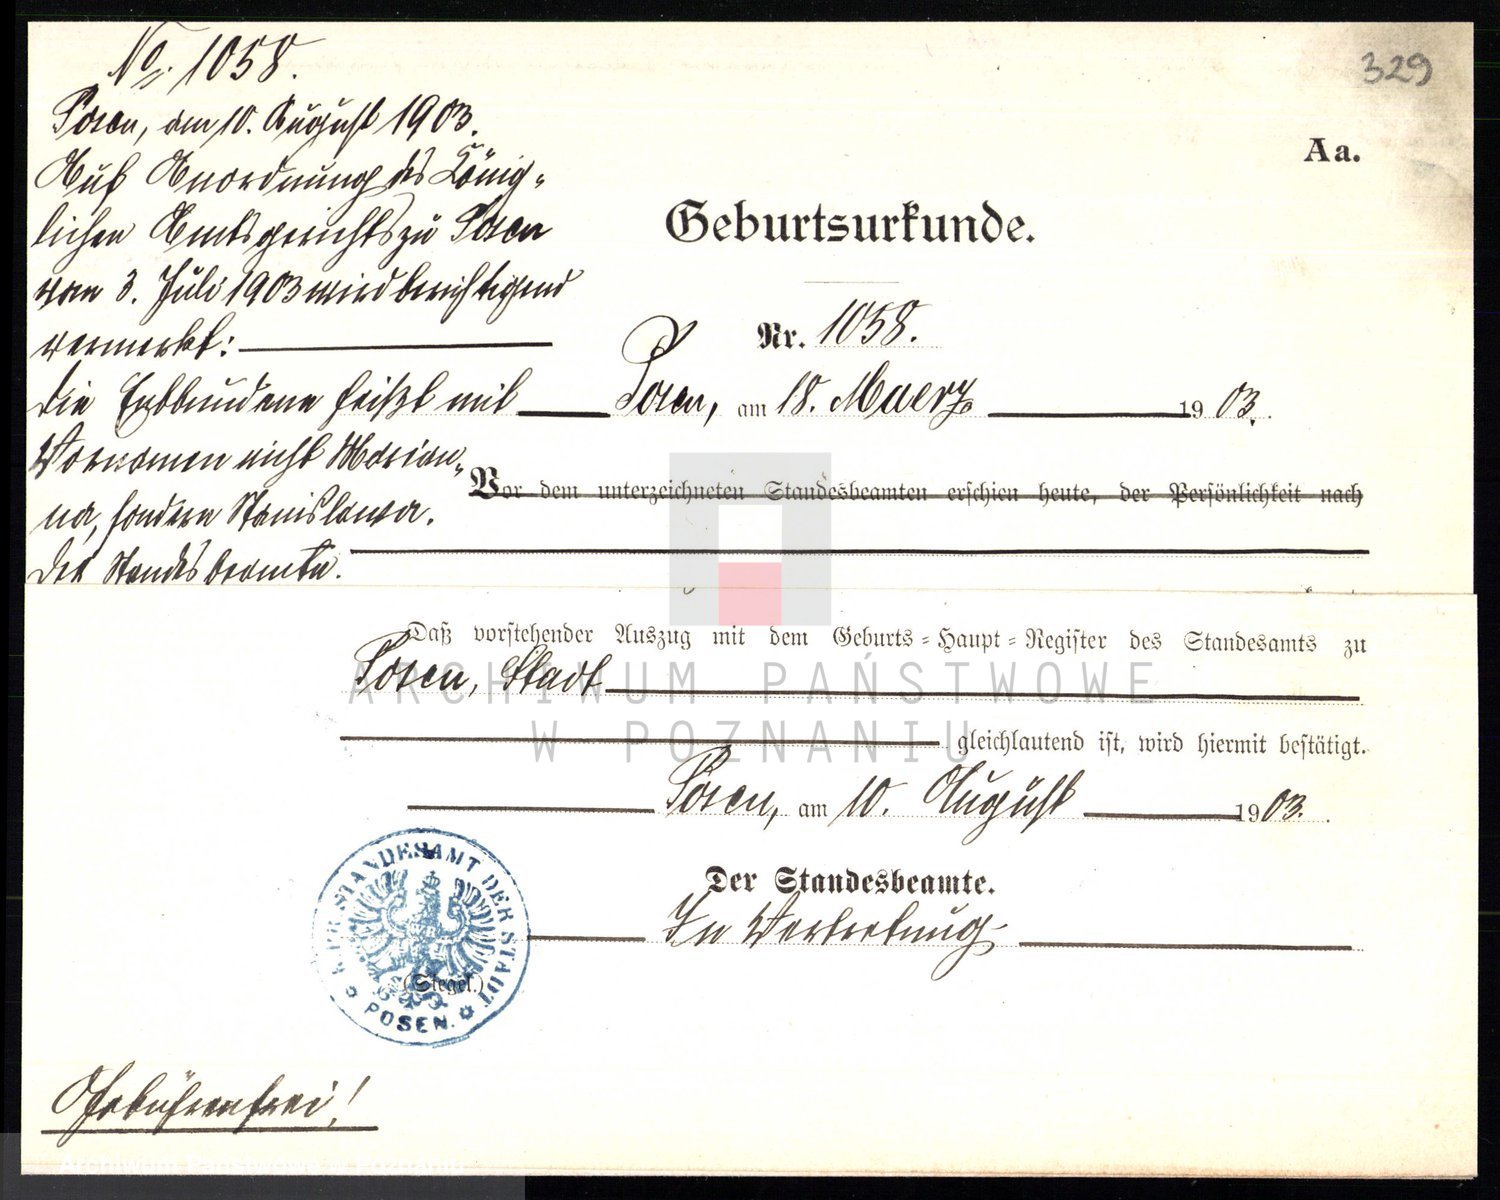 No. 1058.
Posen, am 10. August 1903.
Auf Anordnung des König-
lichen Amtsgerichts zu Posen
vom 3. Juli 1903 wird berichtigend
vermerkt:
Die Entbundene heißt mit
Vornamen nicht Marian-
na, sondern Stanislawa.
Der Standesbeamte.
329
Aa.
Geburtsurkunde.
Nr. 1058.
Posen, am 18. Maerz 1903.
Vor dem unterzeichneten Standesbeamten erschien heute, der Persönlichkeit nach
Daß vorstehender Auszug mit dem Geburts-Haupt-Register des Standesamts zu
Posen, Stadt
gleichlautend ist, wird hiermit bestätigt.
Posen, am 10. August 1903.
Der Standesbeamte.
In Vertretung
(Siegel.)
KGL. PR. STANDESAMT DER STADT
POSEN.
Gebührenfrei!
ARCHIWUM PAŃSTWOWE
W POZNANIU
Archiwum Państwowe w Poznaniu